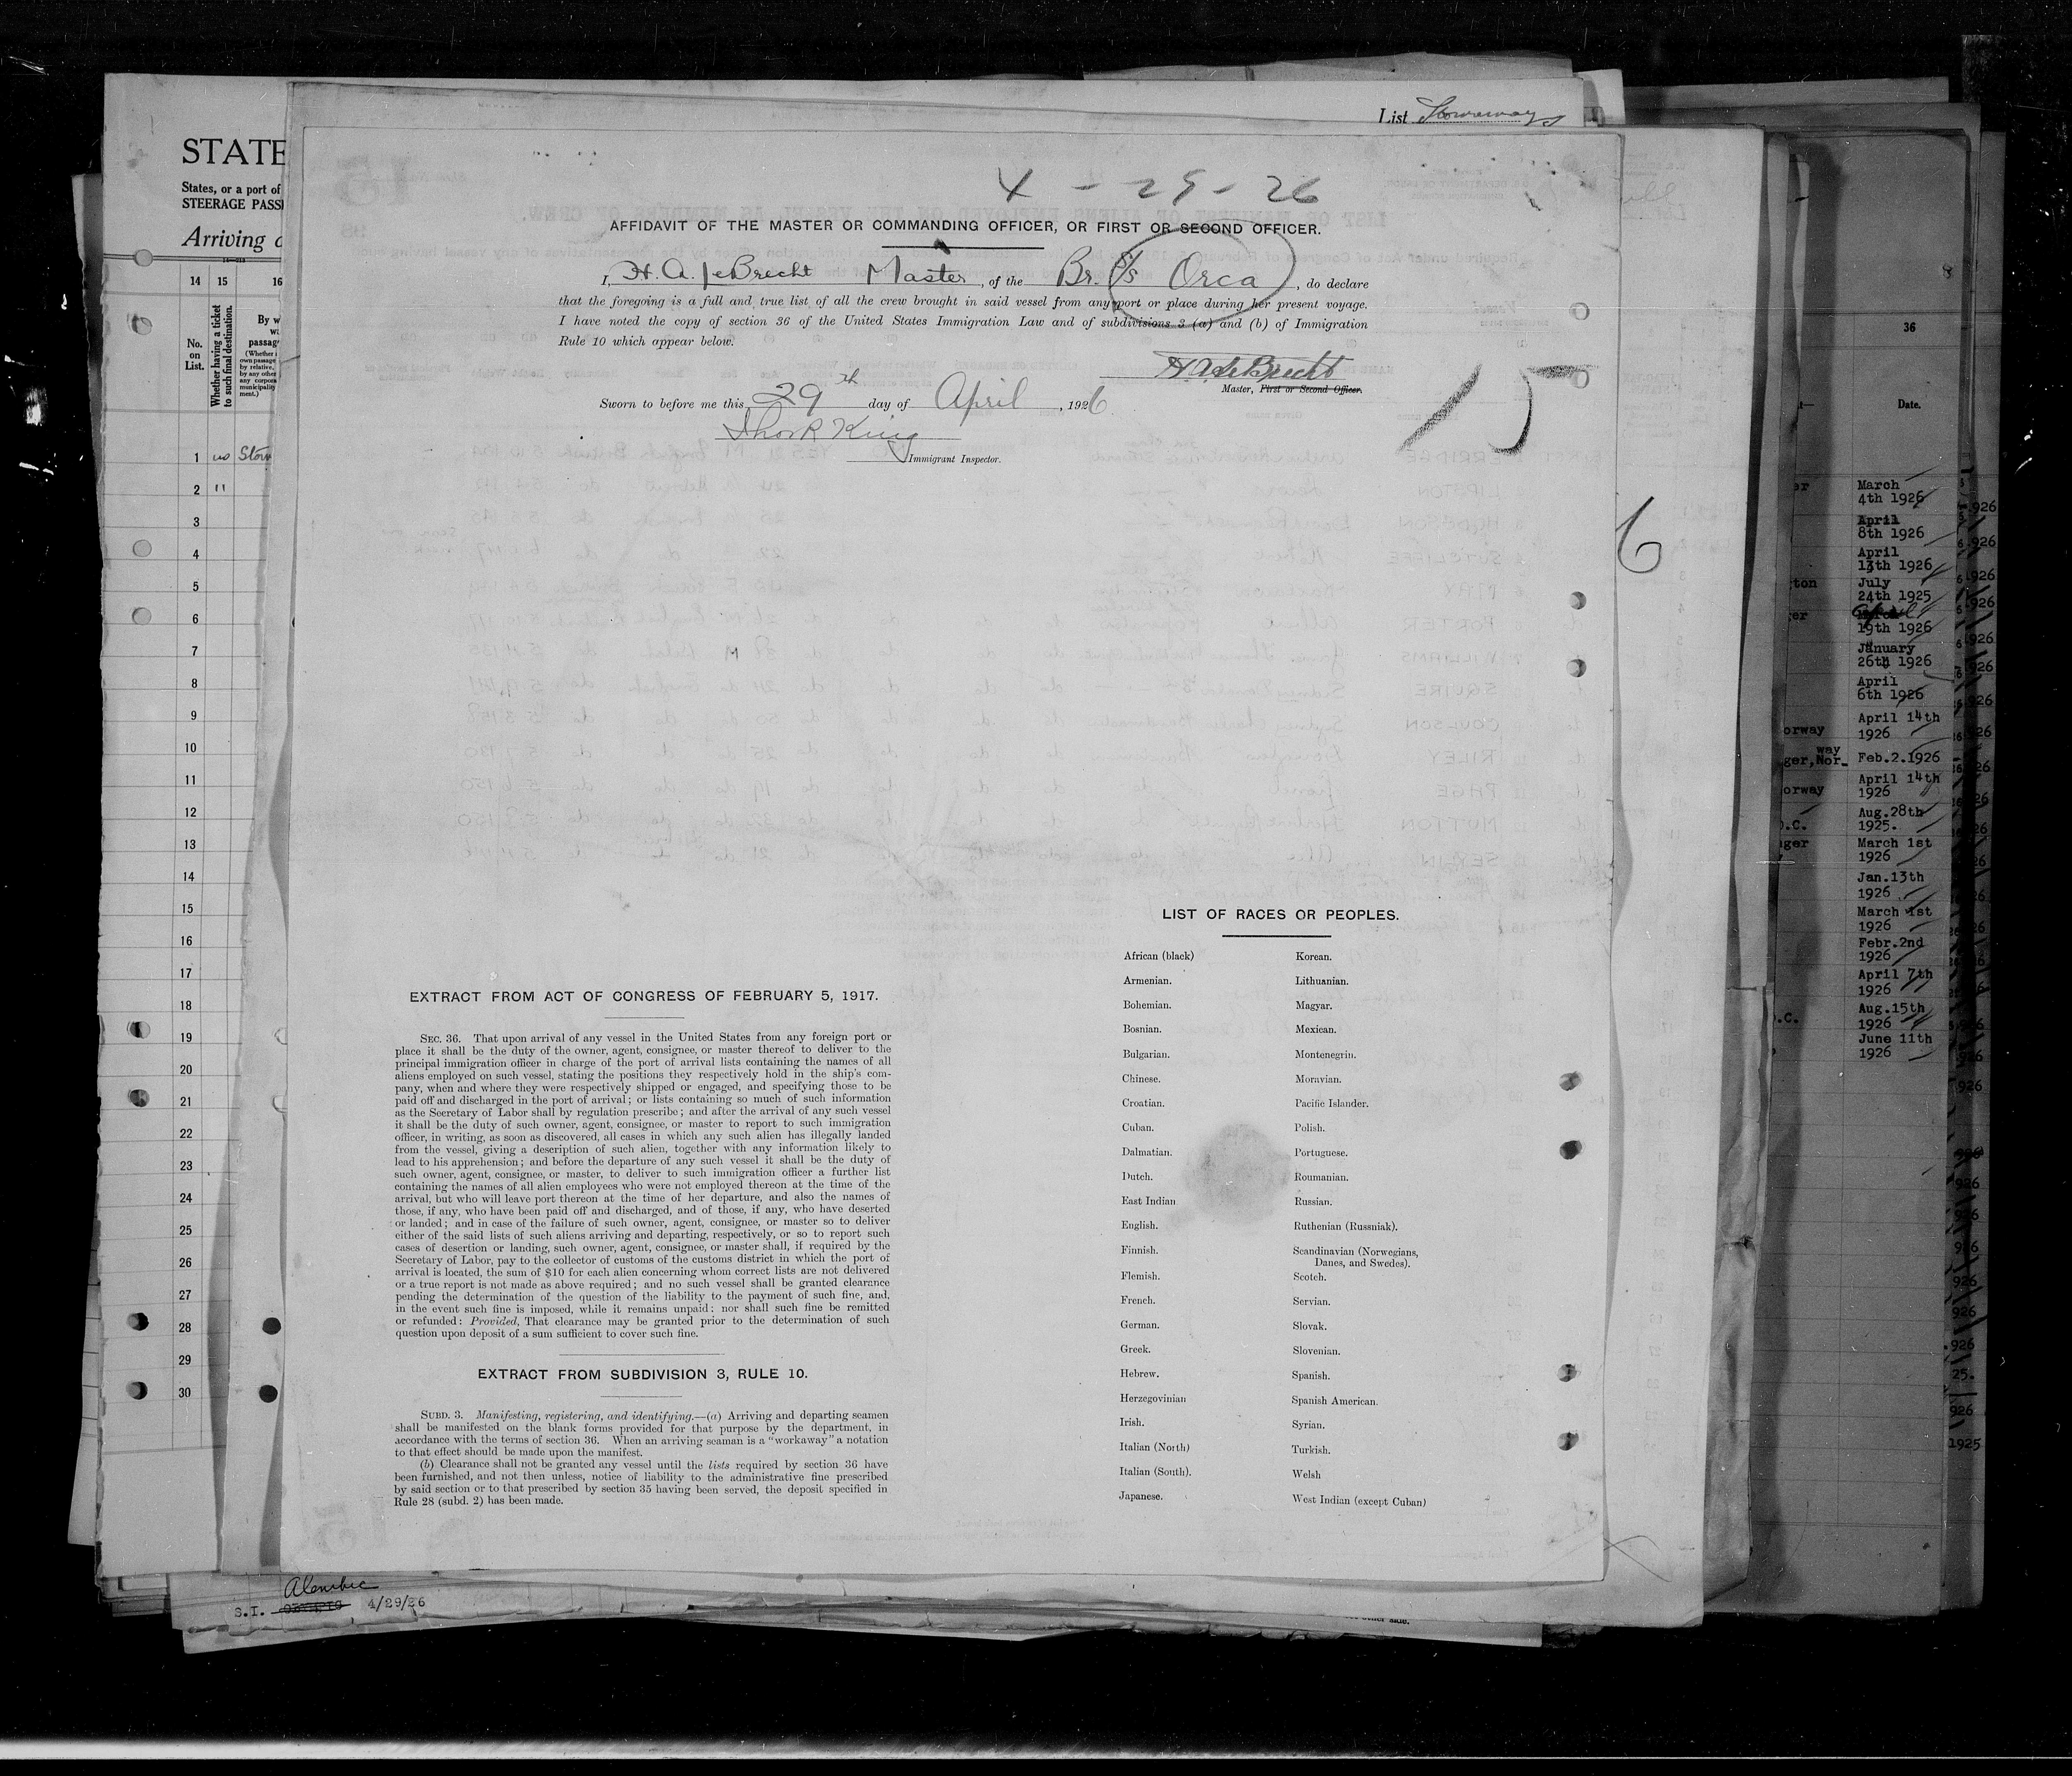 List Stowaways
4 - 29 - 26
AFFIDAVIT OF THE MASTER OR COMMANDING OFFICER, OR FIRST OR SECOND OFFICER.
I, H. A. LeBrecht Master, of the Br. S/S Orca, do declare
that the foregoing is a full and true list of all the crew brought in said vessel from any port or place during her present voyage.
I have noted the copy of section 36 of the United States Immigration Law and of subdivisions 3 (a) and (b) of Immigration
Rule 10 which appear below.
H. A. LeBrecht
Master, First or Second Officer.
Sworn to before me this 29th day of April, 1926
King
Immigrant Inspector.
15
6
EXTRACT FROM ACT OF CONGRESS OF FEBRUARY 5, 1917.
SEC. 36. That upon arrival of any vessel in the United States from any foreign port or
place it shall be the duty of the owner, agent, consignee, or master thereof to deliver to the
principal immigration officer in charge of the port of arrival lists containing the names of all
aliens employed on such vessel, stating the positions they respectively hold in the ship's com-
pany, when and where they were respectively shipped or engaged, and specifying those to be
paid off and discharged in the port of arrival; or lists containing so much of such information
as the Secretary of Labor shall by regulation prescribe; and after the arrival of any such vessel
it shall be the duty of such owner, agent, consignee, or master to report to such immigration
officer, in writing, as soon as discovered, all cases in which any such alien has illegally landed
from the vessel, giving a description of such alien, together with any information likely to
lead to his apprehension; and before the departure of any such vessel it shall be the duty of
such owner, agent, consignee, or master, to deliver to such immigration officer a further list
containing the names of all alien employees who were not employed thereon at the time of the
arrival, but who will leave port thereon at the time of her departure, and also the names of
those, if any, who have been paid off and discharged, and of those, if any, who have deserted
or landed; and in case of the failure of such owner, agent, consignee, or master so to deliver
either of the said lists of such aliens arriving and departing, respectively, or so to report such
cases of desertion or landing, such owner, agent, consignee, or master shall, if required by the
Secretary of Labor, pay to the collector of customs of the customs district in which the port of
arrival is located, the sum of $10 for each alien concerning whom correct lists are not delivered
or a true report is not made as above required; and no such vessel shall be granted clearance
pending the determination of the question of the liability to the payment of such fine, and,
in the event such fine is imposed, while it remains unpaid; nor shall such fine be remitted
or refunded: Provided, That clearance may be granted prior to the determination of such
question upon deposit of a sum sufficient to cover such fine.
EXTRACT FROM SUBDIVISION 3, RULE 10.
SUBD. 3. Manifesting, registering, and identifying.—(a) Arriving and departing seamen
shall be manifested on the blank forms provided for that purpose by the department, in
accordance with the terms of section 36. When an arriving seaman is a "workaway" a notation
to that effect should be made upon the manifest.
(b) Clearance shall not be granted any vessel until the lists required by section 36 have
been furnished, and not then unless, notice of liability to the administrative fine prescribed
by said section or to that prescribed by section 35 having been served, the deposit specified in
Rule 28 (subd. 2) has been made.
LIST OF RACES OR PEOPLES.
African (black)
Armenian.
Bohemian.
Bosnian.
Bulgarian.
Chinese.
Croatian.
Cuban.
Dalmatian.
Dutch.
East Indian
English.
Finnish.
Flemish.
French.
German.
Greek.
Hebrew.
Herzegovinian
Irish.
Italian (North)
Italian (South).
Japanese.
Korean.
Lithuanian.
Magyar.
Mexican.
Montenegrin.
Moravian.
Pacific Islander.
Polish.
Portuguese.
Roumanian.
Russian.
Ruthenian (Russniak).
Scandinavian (Norwegians,
Danes, and Swedes).
Scotch.
Servian.
Slovak.
Slovenian.
Spanish.
Spanish American.
Syrian.
Turkish.
Welsh
West Indian (except Cuban)
STATE
States, or a port of
STEERAGE PASS
Arriving
14 15 16
No.
on
List.
Whether having a ticket
to such final destination.
By w
passag
(Whether
own passage
by relative,
by any other
any corpora
municipality
ment.)
1 no Stow
2 "
3
4
5
6
7
8
9
10
11
12
13
14
15
16
17
18
19
20
21
22
23
24
25
26
27
28
29
30
Alembic
S.I. 4/29/26
36
Date.
March
4th 1926
April
8th 1926
April
13th 1926
July
24th 1925
April
19th 1926
January
26th 1926
April
6th 1926
April 14th
1926
Feb.2.1926
April 14th
1926
Aug.28th
1925.
March 1st
1926
Jan.13th
1926
March 1st
1926
Febr.2nd
1926
April 7th
1926
Aug.15th
1926
June 11th
1926